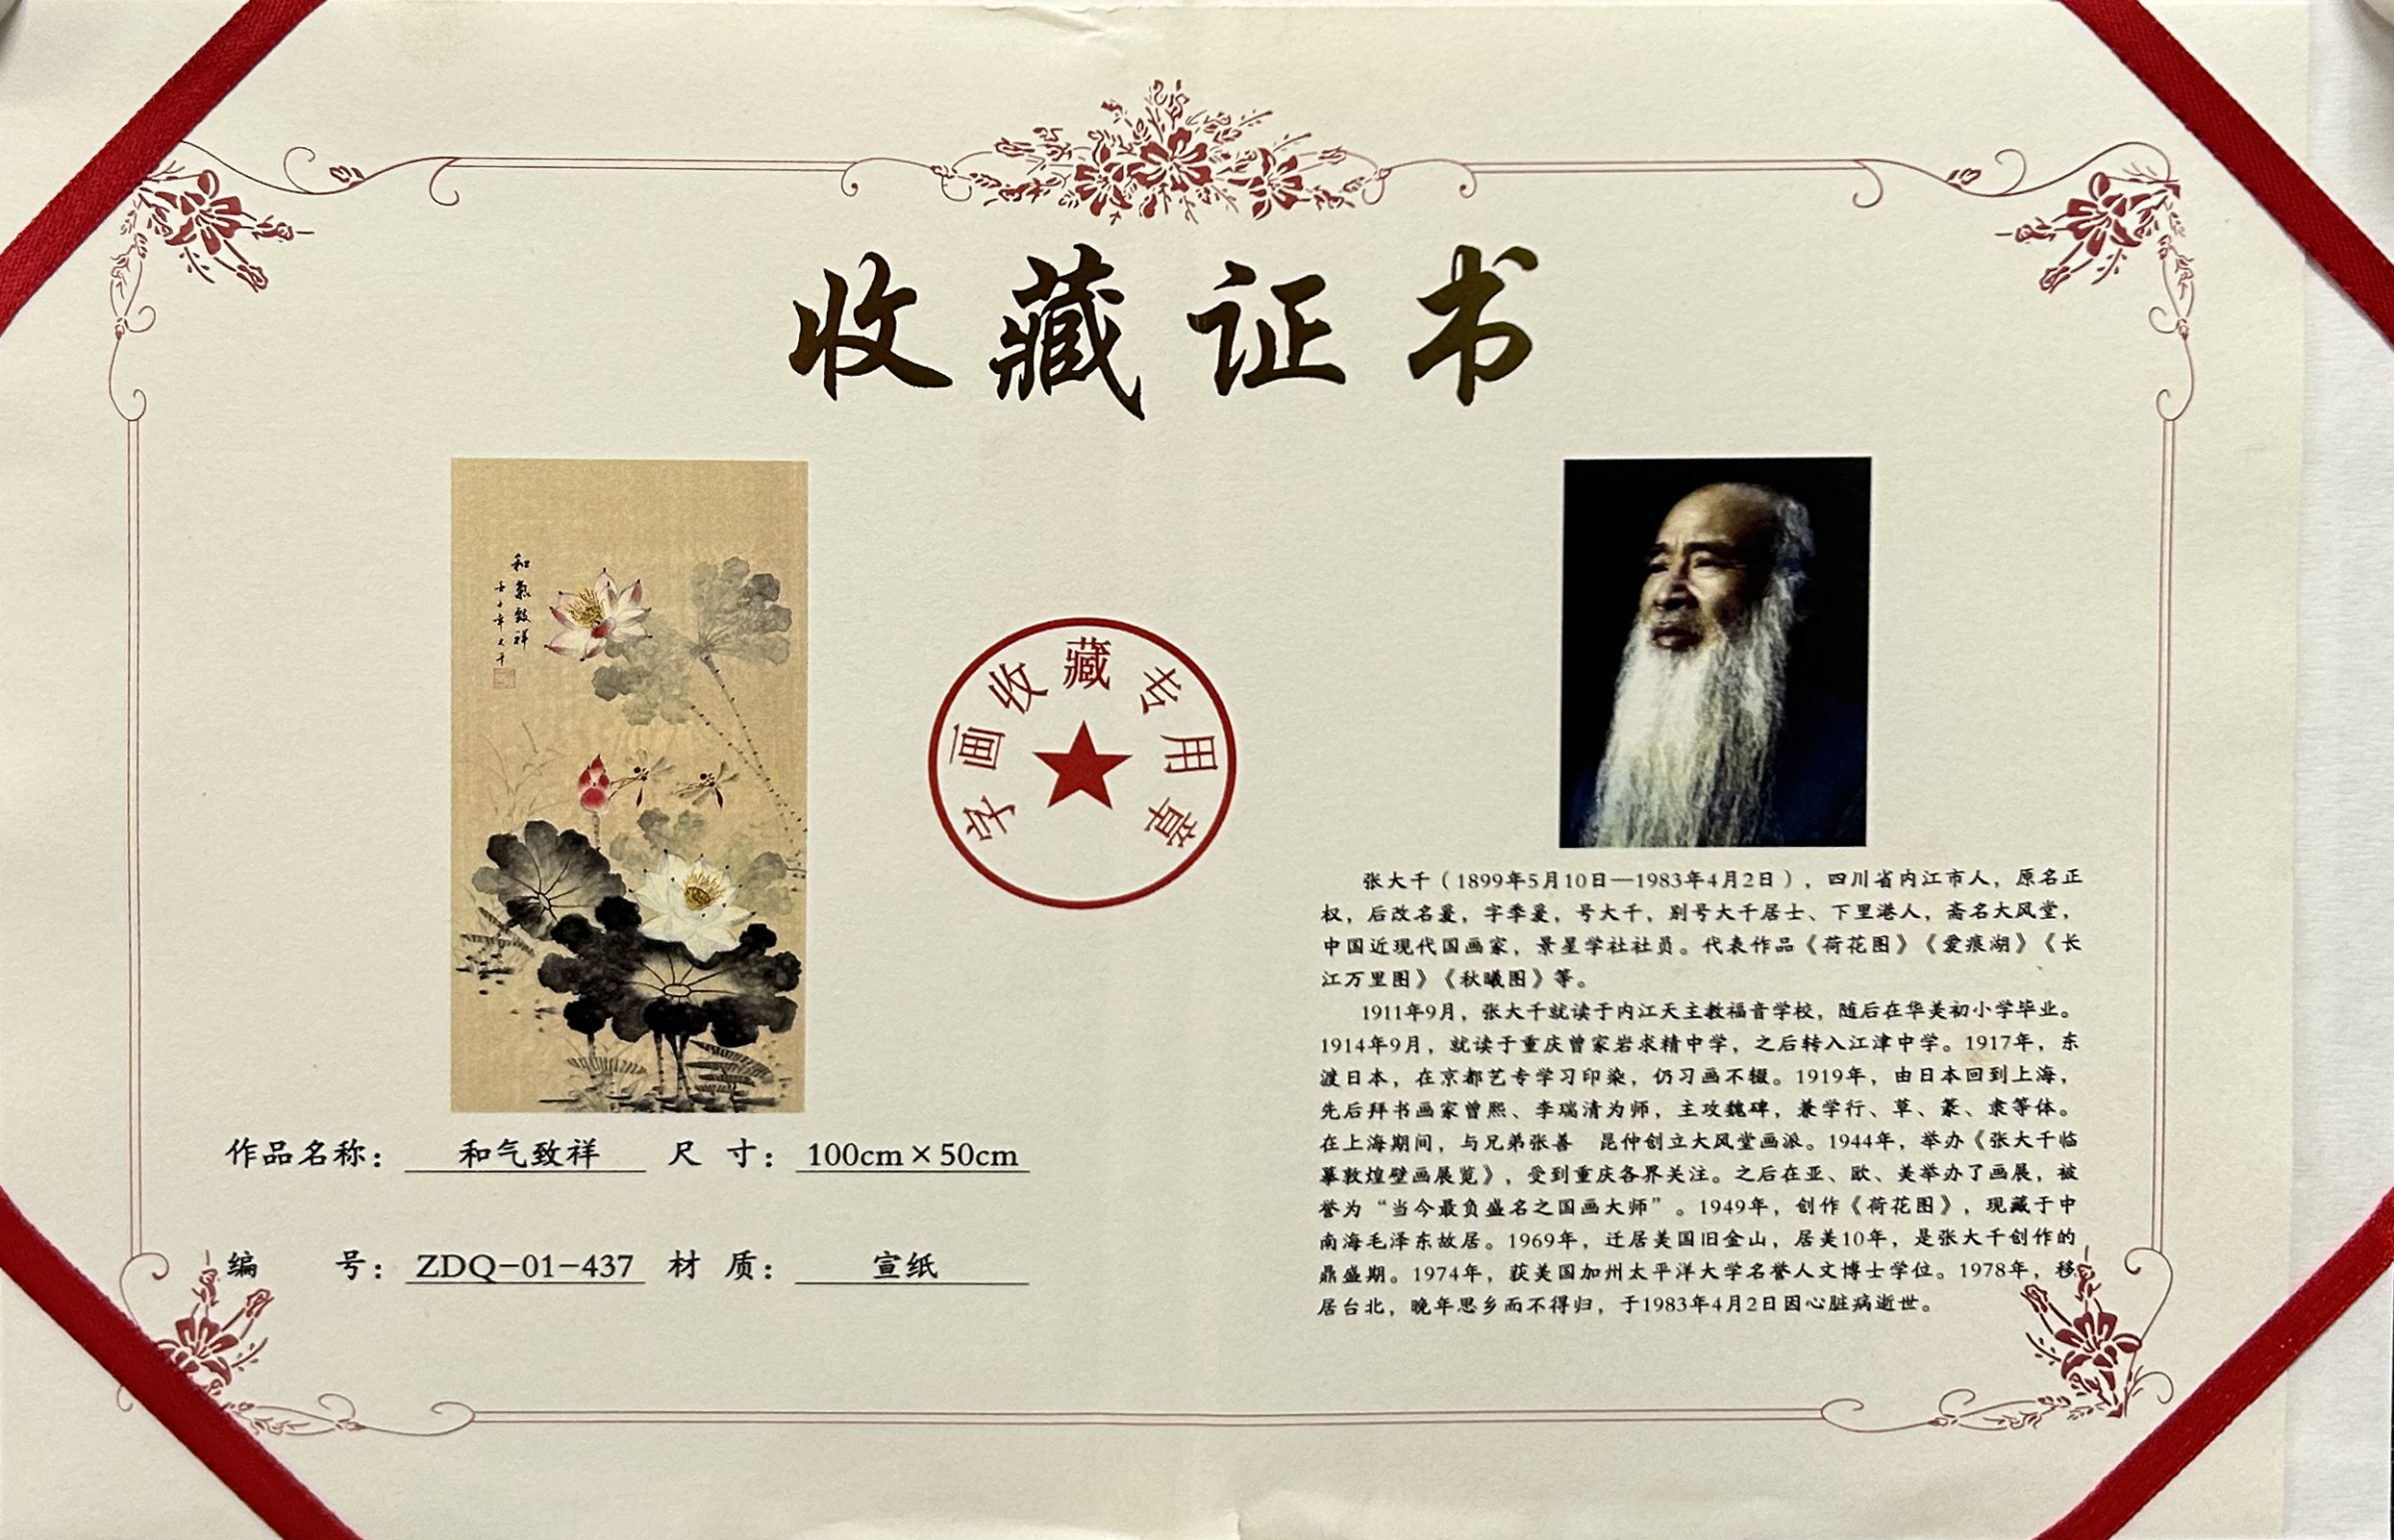 收藏证书
和氣致祥
壬子年大千
字画收藏专用章
作品名称： 和气致祥 尺 寸： 100cm×50cm
编 号： ZDQ-01-437 材 质： 宣纸
张大千（1899年5月10日—1983年4月2日），四川省内江市人，原名正
权，后改名爰，字季爰，号大千，别号大千居士、下里港人，斋名大风堂，
中国近现代国画家，景星学社社员。代表作品《荷花图》《爱痕湖》《长
江万里图》《秋曦图》等。
1911年9月，张大千就读于内江天主教福音学校，随后在华美初小学毕业。
1914年9月，就读于重庆曾家岩求精中学，之后转入江津中学。1917年，东
渡日本，在京都艺专学习印染，仍习画不辍。1919年，由日本回到上海，
先后拜书画家曾熙、李瑞清为师，主攻魏碑，兼学行、草、篆、隶等体。
在上海期间，与兄弟张善 昆仲创立大风堂画派。1944年，举办《张大千临
摹敦煌壁画展览》，受到重庆各界关注。之后在亚、欧、美举办了画展，被
誉为“当今最负盛名之国画大师”。1949年，创作《荷花图》，现藏于中
南海毛泽东故居。1969年，迁居美国旧金山，居美10年，是张大千创作的
鼎盛期。1974年，获美国加州太平洋大学名誉人文博士学位。1978年，移
居台北，晚年思乡而不得归，于1983年4月2日因心脏病逝世。